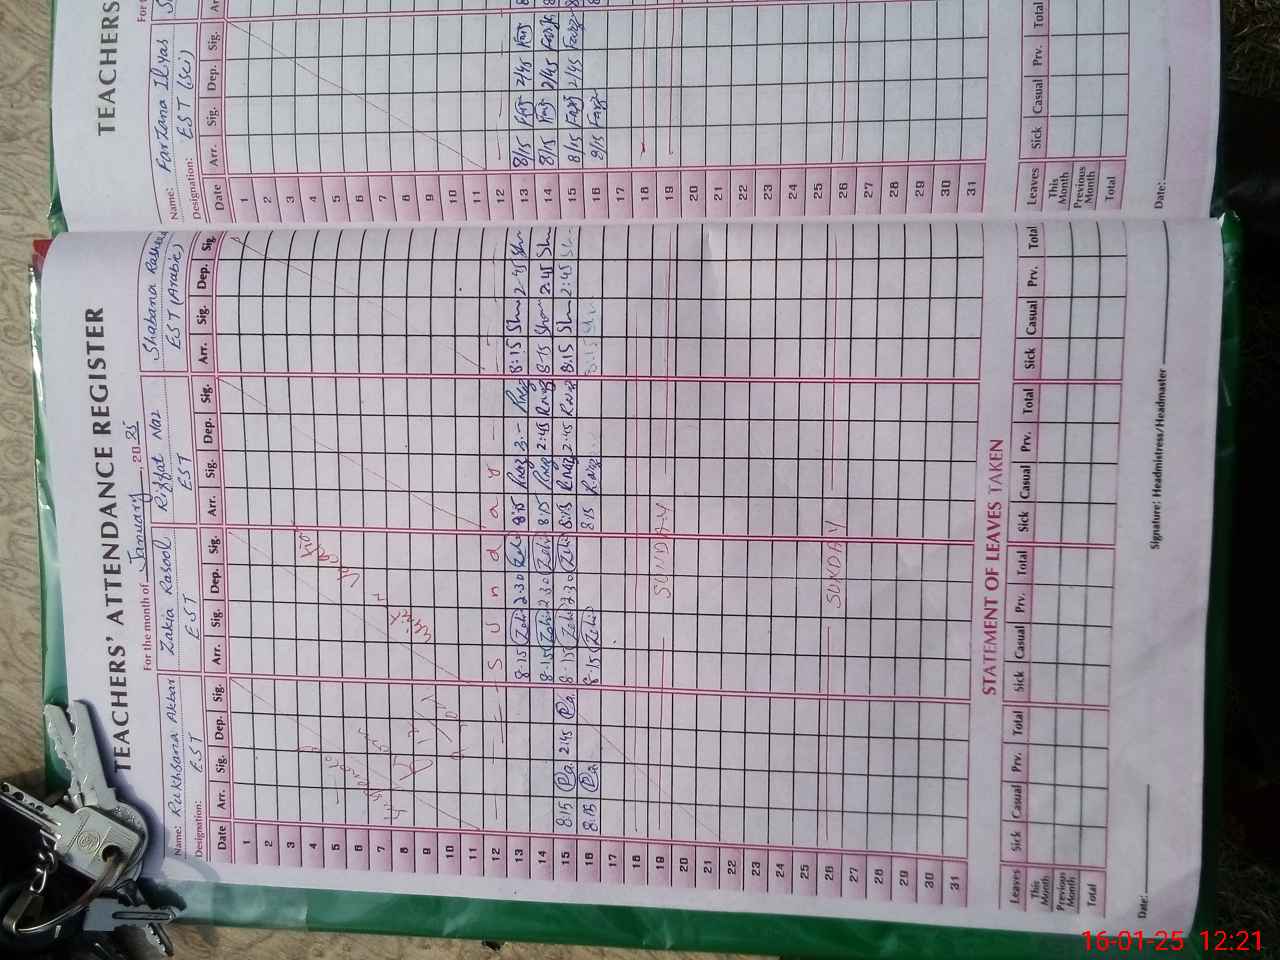 TEACHERS' ATTENDANCE REGISTER
For the month of January, 2025
Name: Rukhsana Akbar Zakia Rasool Riffat Naz Shabana Rasheed
Designation: EST EST EST EST (Arabic)
Date Arr. Sig. Dep. Sig. Arr. Sig. Dep. Sig. Arr. Sig. Dep. Sig. Arr. Sig. Dep. Sig.
1
2
3
4
5
6
7
8
9
10
11
Winter Vacation
12 Sunday
13 8:15 2:30 8:15 Rnaz 2:- Rnaz 8:15 2:45
14 8:15 2:30 8:15 Rnaz 2:45 Rnaz 8:15 2:45
15 8:15 2:45 8:15 2:30 8:15 Rnaz 2:45 Rnaz 8:15 2:45
16 8:15 8:15 8:15 Rnaz 8:15
17
18
19 SUNDAY
20
21
22
23
24
25
26 SUNDAY
27
28
29
30
31
STATEMENT OF LEAVES TAKEN
Leaves Sick Casual Prv. Total Sick Casual Prv. Total Sick Casual Prv. Total Sick Casual Prv. Total
This Month
Previous Month
Total
Date: Signature: Headmistress/Headmaster
TEACHERS
For t
Name: Farzana Ilyas
Designation: EST (Sci)
Date Arr. Sig. Dep. Sig. Ar
1
2
3
4
5
6
7
8
9
10
11
12
13 8/15 2/45
14 8/15 2/45
15 8/15 2/45
16 8/15
17
18
19
20
21
22
23
24
25
26
27
28
29
30
31
Leaves Sick Casual Prv. Total
This Month
Previous Month
Total
Date:
16-01-25 12:21